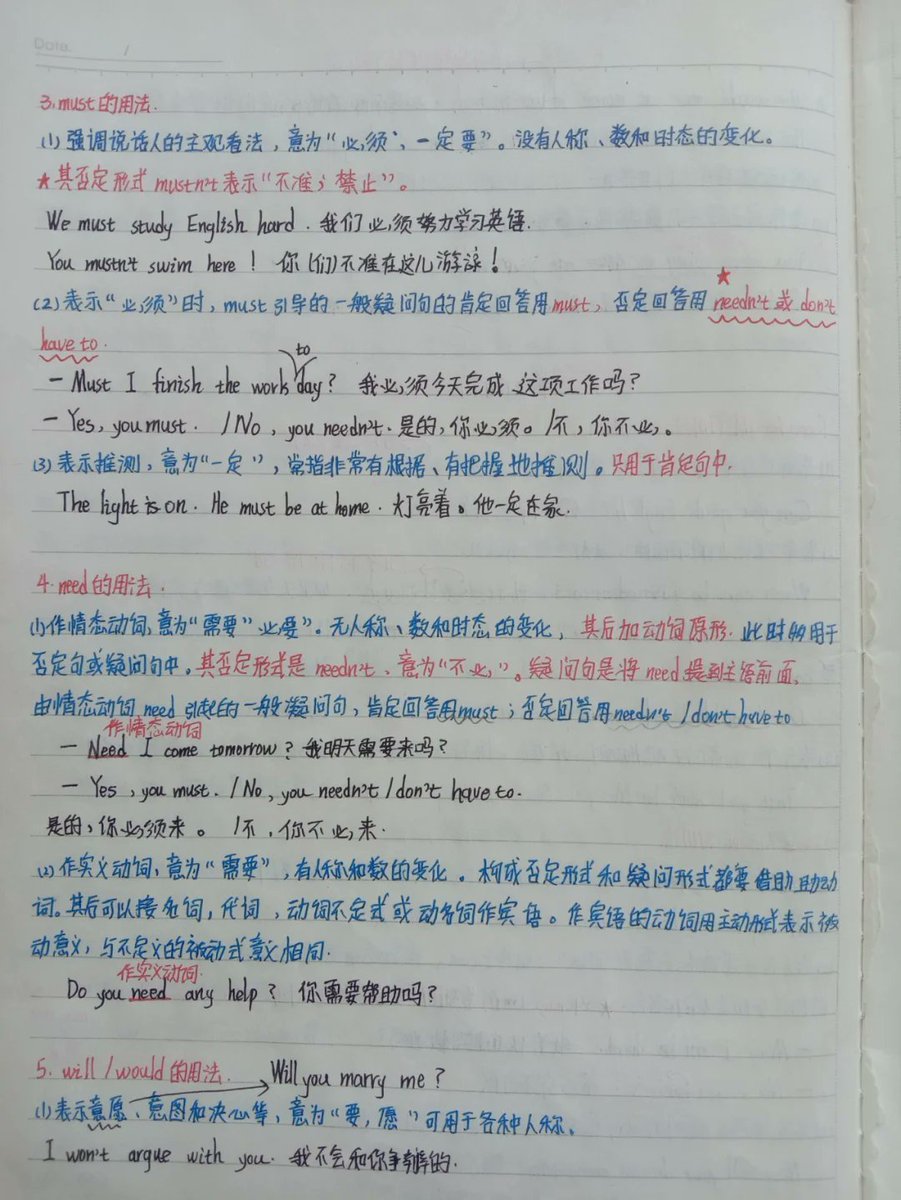 Date. /
3. must的用法.
(1) 强调说话人的主观看法，意为“必须；一定要”。没有人称、数和时态的变化。
★其否定形式 mustn't 表示“不准；禁止”。
We must study English hard. 我们必须努力学习英语.
You mustn't swim here! 你(们)不准在这儿游泳!
(2) 表示“必须”时，must 引导的一般疑问句的肯定回答用must，否定回答用 ★needn't 或 don't
have to.
— Must I finish the work to day? 我必须今天完成这项工作吗?
— Yes, you must. / No, you needn't. 是的,你必须。/不,你不必。
(3) 表示推测，意为“一定”，常指非常有根据、有把握地推测。只用于肯定句中.
The light is on. He must be at home. 灯亮着。他一定在家.
4. need的用法.
(1)作情态动词，意为“需要”必要”。无人称、数和时态的变化，其后加动词原形.此时多用于
否定句或疑问句中。其否定形式是 needn't，意为“不必”。疑问句是将need提到主语前面。
由情态动词 need 引起的一般疑问句，肯定回答用must；否定回答用needn't / don't have to
作情态动词
— Need I come tomorrow? 我明天需要来吗?
— Yes, you must. / No, you needn't / don't have to.
是的,你必须来。 /不,你不必来.
(2)作实义动词，意为“需要”，有人称和数的变化. 构成否定形式和疑问形式都要借助助动
词。其后可以接名词，代词，动词不定式或动名词作宾语。作宾语的动词用主动形式表示被
动意义，与不定义的被动式意义相同.
作实义动词.
Do you need any help? 你需要帮助吗?
5. will / would的用法. Will you marry me?
(1)表示意愿、意图和决心等，意为“要，愿”可用于各种人称。
I won't argue with you. 我不会和你争辩的.